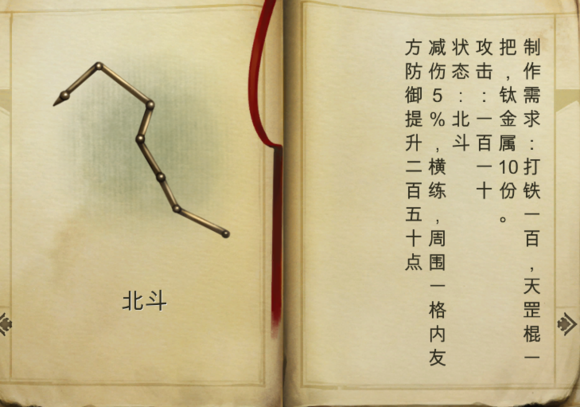 北斗
制作需求：打铁一百，天罡棍一
把，钛金属10份。
攻击：一百一十
状态：北斗
减伤5%，横练，周围一格内友
方防御提升二百五十点